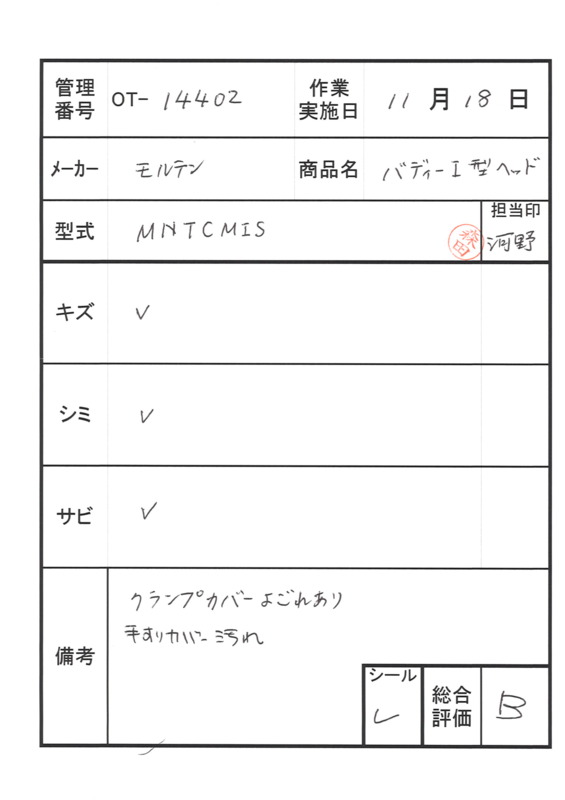 管理番号 OT- 14402 作業実施日 11 月 18 日
メーカー モルテン 商品名 バディーI型ヘッド
型式 MNTCMIS 担当印 河野
キズ ✓
シミ ✓
サビ ✓
備考 クランプカバーよごれあり
手すりカバー汚れ
シール ✓ 総合評価 B